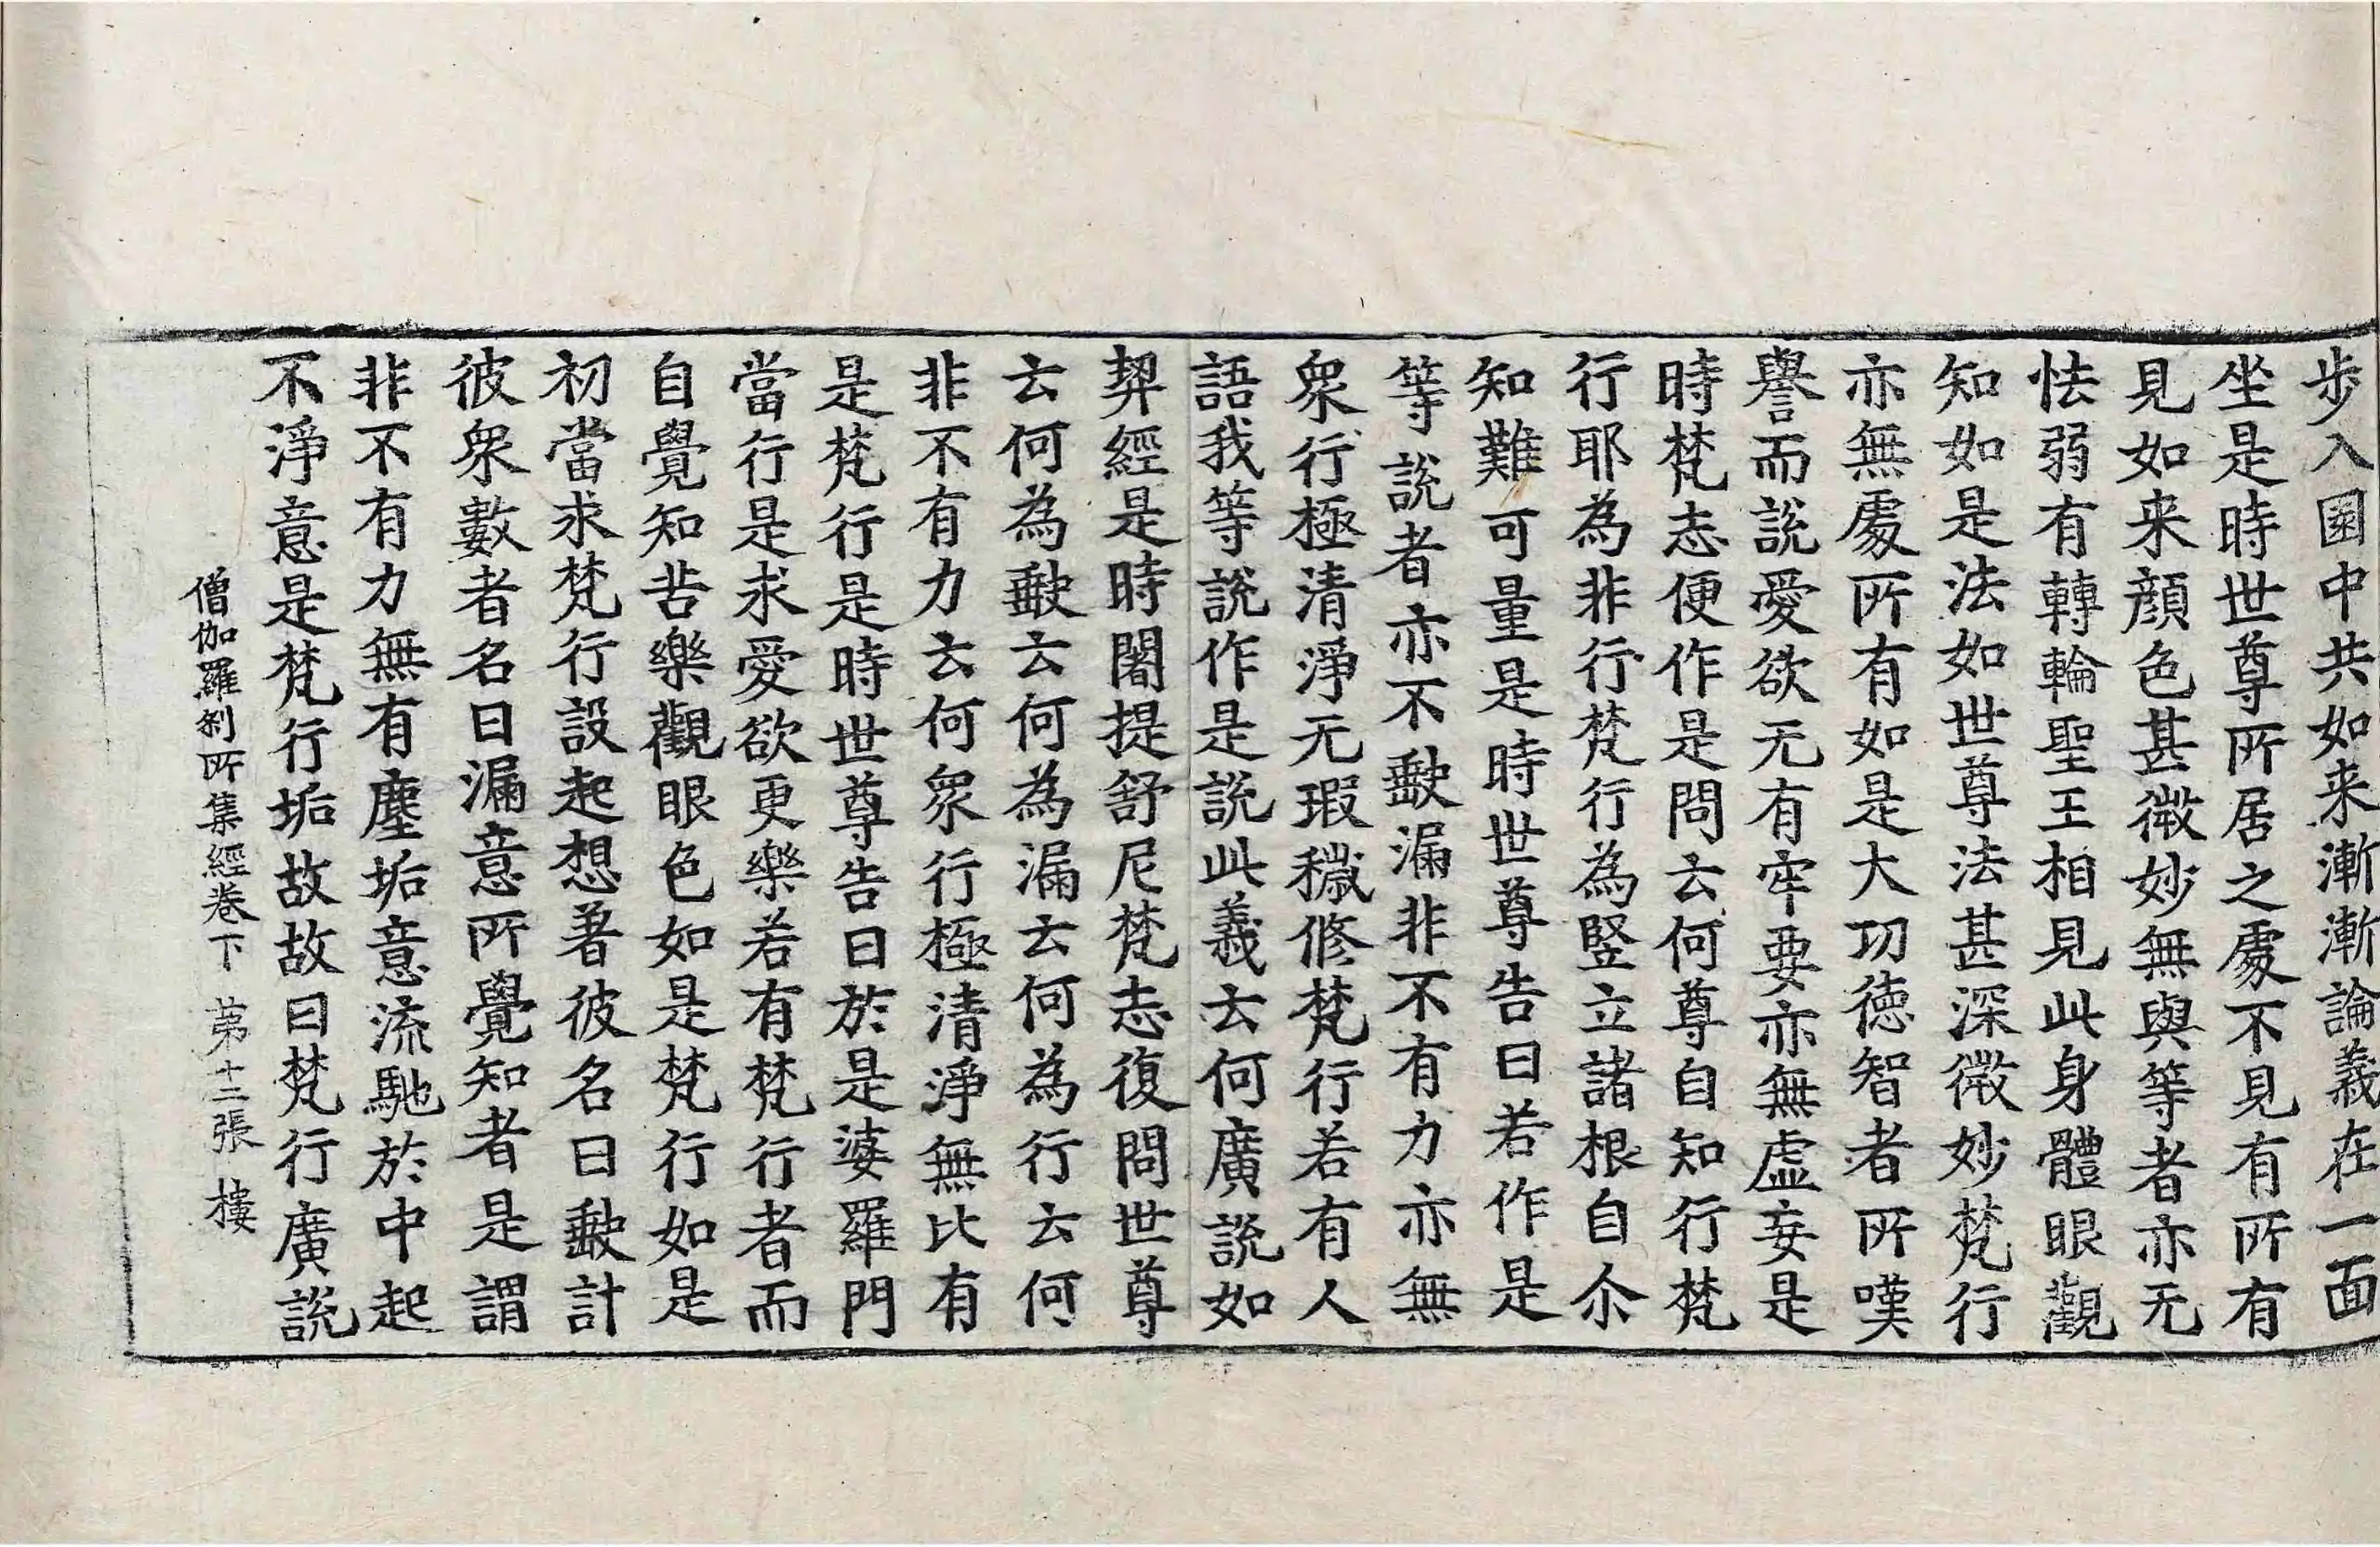 步入園中共如来漸漸論義在一面
坐是時世尊所居之處不見有所有
見如来顔色甚微妙無與等者亦无
怯弱有轉輪聖王相見此身體眼觀
知如是法如世尊法甚深微妙梵行
亦無處所有如是大功德智者所嘆
譽而説愛欲无有牢要亦無虛妄是
時梵志便作是問云何尊自知行梵
行耶為非行梵行為竪立諸根自尒
知難可量是時世尊告曰若作是
等説者亦不缺漏非不有力亦無
衆行極清淨无瑕穢修梵行若有人
語我等説作是説此義云何廣説如
契經是時闍提舒尼梵志復問世尊
云何為缺云何為漏云何為行云何
非不有力云何衆行極清淨無比有
是梵行是時世尊告曰於是婆羅門
當行是求愛欲更樂若有梵行者而
自覺知苦樂觀眼色如是梵行如是
初當求梵行設起想著彼名曰缺計
彼衆數者名曰漏意所覺知者是謂
非不有力無有塵垢意流馳於中起
不淨意是梵行垢故故曰梵行廣説
僧伽羅刹所集經卷下 苐十二張 樓